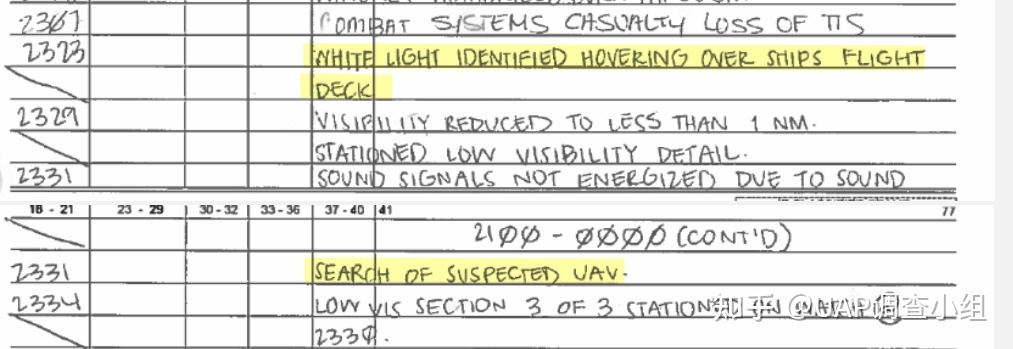 2307 COMBAT SYSTEMS CASUALTY LOSS OF TIS
2323 WHITE LIGHT IDENTIFIED HOVERING OVER SHIPS FLIGHT
DECK
2329 VISIBILITY REDUCED TO LESS THAN 1 NM.
STATIONED LOW VISIBILITY DETAIL.
2331 SOUND SIGNALS NOT ENERGIZED DUE TO SOUND
18 - 21 23 - 29 30 - 32 33 - 36 37 - 40 41 77
21ØØ - ØØØØ (CONT'D)
2331 SEARCH OF SUSPECTED UAV.
2334 LOW VIS SECTION 3 OF 3 STATIONED ON WATCH @
233Ø.
知乎 @UAP调查小组